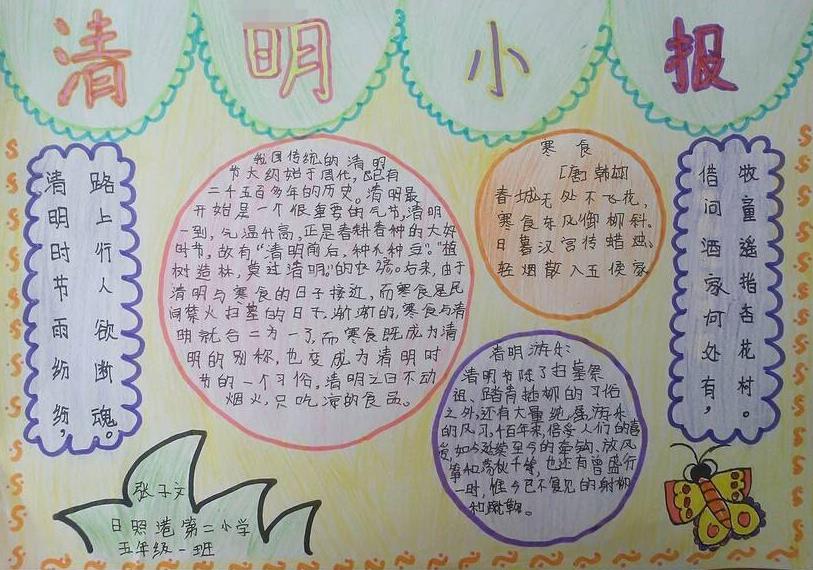 清明小报
清明时节雨纷纷，
路上行人欲断魂。
我国传统的清明
节大约始于周代，已有
二千五百多年的历史。清明最
开始是一个很重要的气节，清明
一到，气温升高，正是春耕春种的大好
时节，故有“清明前后，种瓜种豆”。“植
树造林，莫过清明”的农谚。后来，由于
清明与寒食的日子接近，而寒食是民
间禁火扫墓的日子，渐渐的，寒食与清
明就合二为一了，而寒食既成为清
明的别称，也变成为清明时
节的一个习俗，清明之日不动
烟火，只吃凉的食品。
寒食
[唐]韩翃
春城无处不飞花，
寒食东风御柳斜。
日暮汉宫传蜡烛，
轻烟散入五侯家
清明游乐：
清明节除了扫墓祭
祖、踏青插柳的习俗
之外，还有大量
的风习，千百年来，倍受人们的喜
如今延续至今的 放风
筝和荡秋千等，也还有曾盛行
一时，惟今已不复见的射柳
和蹴鞠。
借问酒家何处有，
牧童遥指杏花村。
张子文
日照港第二小学
五年级一班